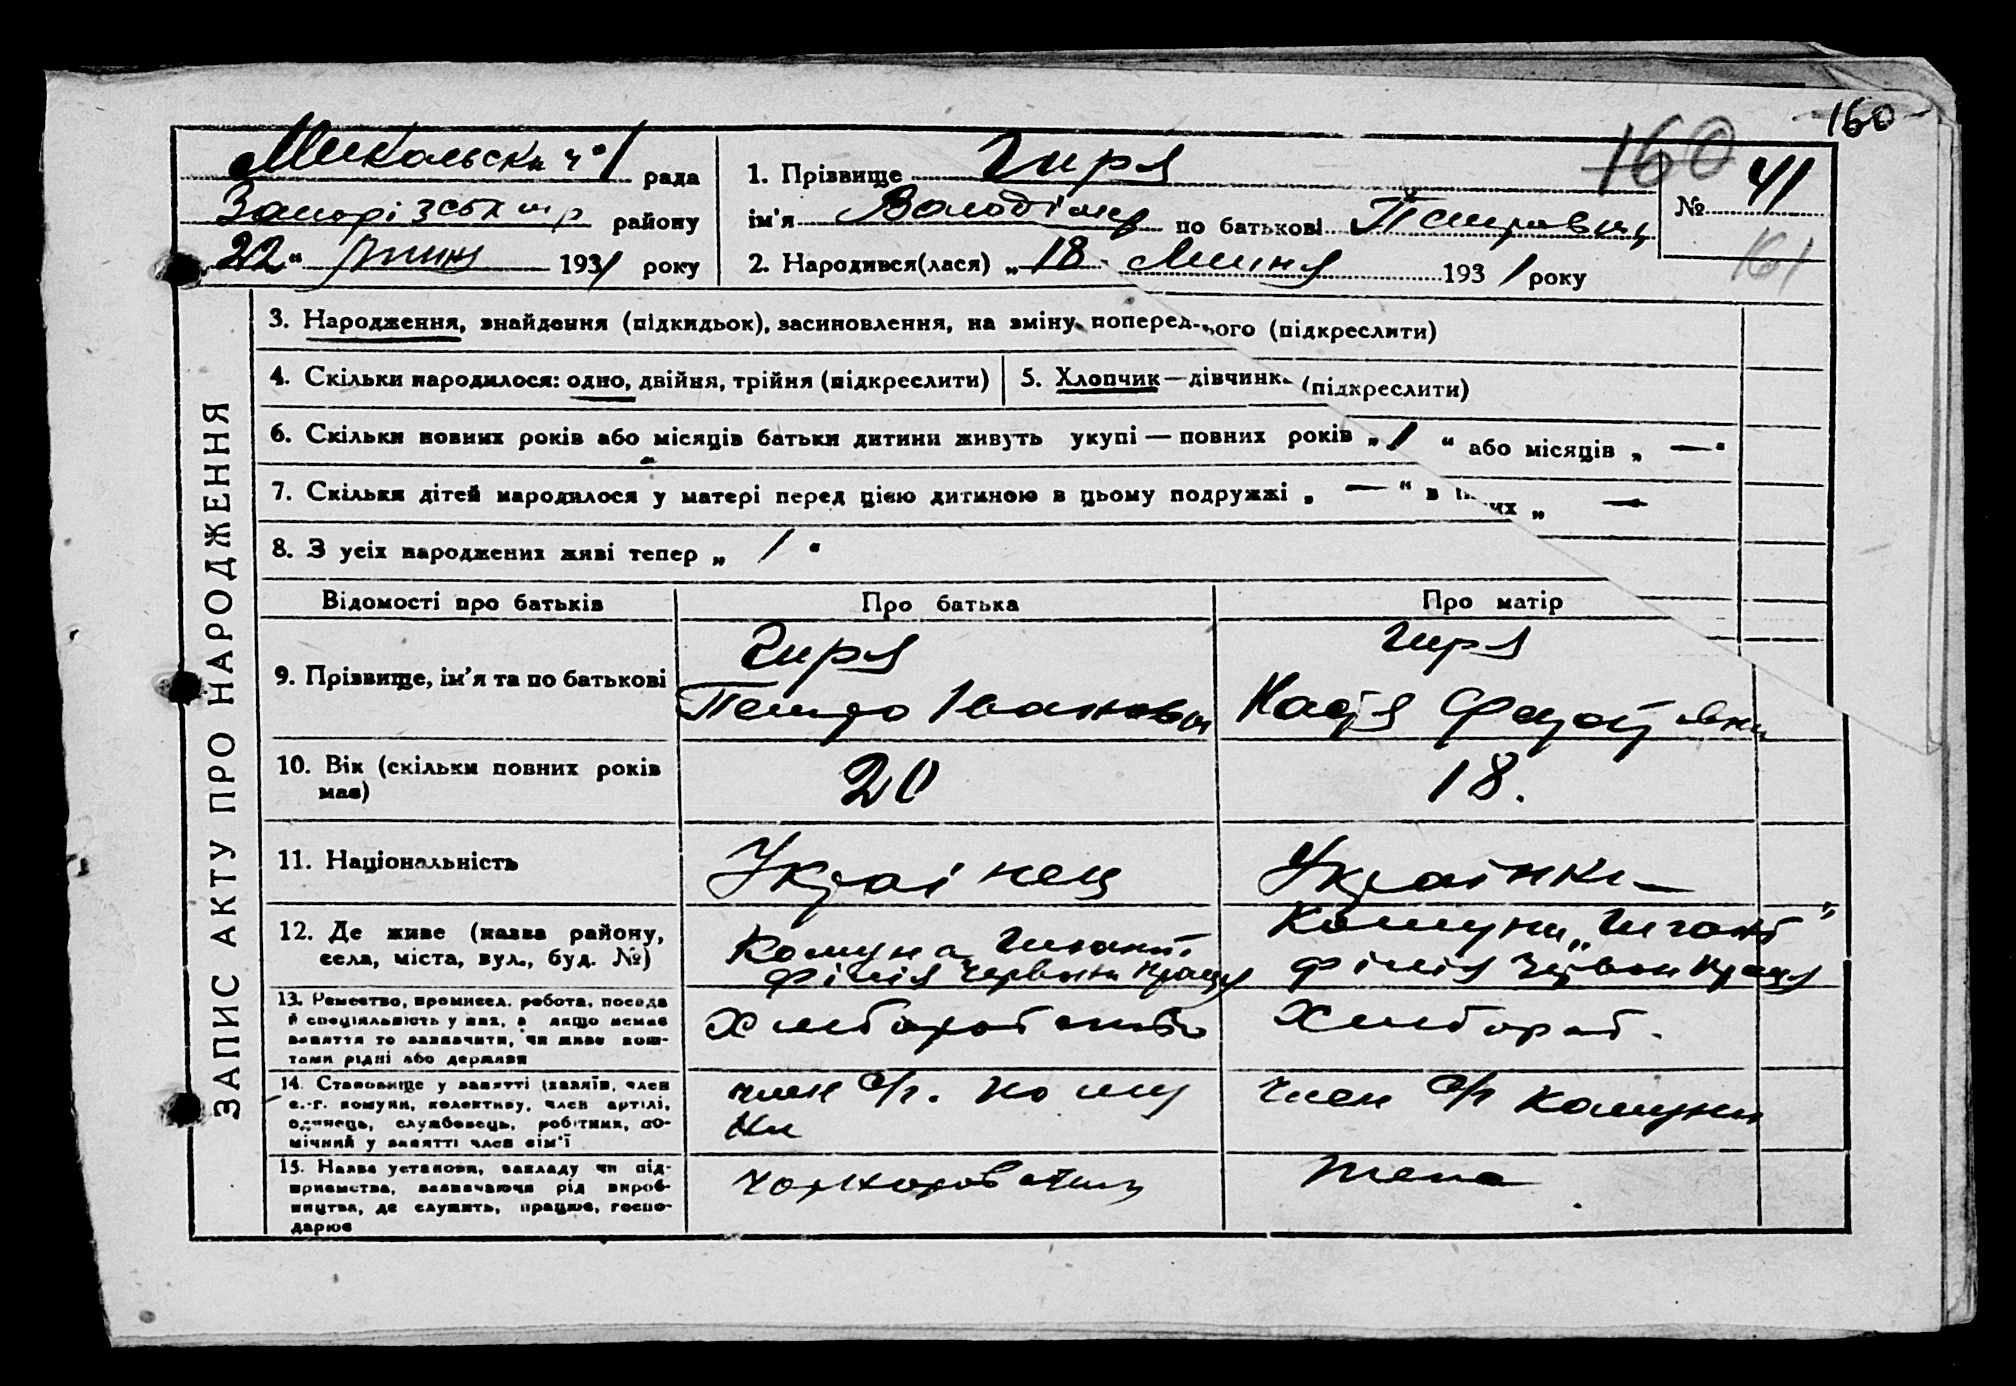 160
160
Микольська ч 1 рада
Запорізськ району
"22" 1931 року
1. Прізвище Гиря
ім'я Володімир по батькові Петрович
2. Народився(лася) "18 Липня 1931 року
№ 41
161
ЗАПИС АКТУ ПРО НАРОДЖЕННЯ
3. Народження, знайдення (підкидьок), засиновлення, на зміну поперед- ього (підкреслити)
4. Скільки народилося: одно, двійня, трійня (підкреслити)
5. Хлопчик—дівчинка (підкреслити)
6. Скільки повних років або місяців батьки дитини живуть укупі — повних років „ 1 “ або місяців „ — “
7. Скільки дітей народилося у матері перед цією дитиною в цьому подружжі „ — “ в інших „ —
8. З усіх народжених живі тепер „ 1 “
Відомості про батьків
Про батька
Про матір
9. Прізвище, ім'я та по батькові
Гиря
Петро Іванович
Гиря
Надя
10. Вік (скільки повних років має)
20
18.
11. Національність
Українець
Українка
12. Де живе (назва району, села, міста, вул., буд. №)
Комуна Гігант
філія Червони Праця
Комуни „Гігант“
філія Червон Праця
13. Ремество, промисел, робота, посада
й спеціяльність у них, а якщо немає
заняття то зазначити, чи живе кош-
тами рідні або держави
Хлібороб
Хлібороб.
14. Становище у занятті (хазяїн, член
с.-г. комуни, колективу, член артілі,
одинець, службовець, робітник, по-
мічний у занятті член сім'ї
член с/г. кому
ни
член с/г комуни
15. Назва установи, закладу чи під-
приємства, зазначаючи рід вироб-
ництва, де служить, працює, госпо-
дарює